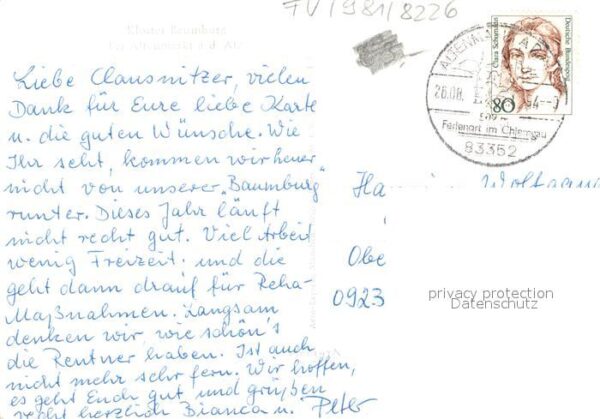 FV 1981/8226
Kloster Baumburg
bei Altenmarkt a. d. Alz
Liebe Clausnitzer, vielen
Dank für Eure liebe Karte
u. die guten Wünsche. Wie
Ihr seht, kommen wir heuer
nicht von unserer "Baumburg"
runter. Dieses Jahr läuft
nicht recht gut. Viel Arbeit
wenig Freizeit und die
geht dann drauf für Reha-
Maßnahmen. Langsam
denken wir, wie schön's
die Rentner haben. Ist auch
nicht mehr sehr fern. Wir hoffen,
es geht Euch gut und grüßen
recht herzlich Bianca u. Peter
Clara Schumann
Deutsche Bundespost
80
26.08.
Ferienort im Chiemgau
83352
Wolfgang
Obe
0923
privacy protection
Datenschutz